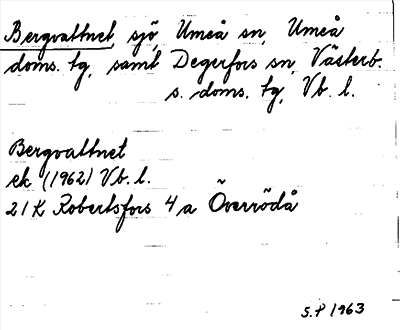 Bergvattnet, sjö, Umeå sn, Umeå
doms. tg, samt Degerfors sn, Västerb.
s. doms. tg, Vb. l.
Bergvattnet
ek (1962) Vb. l.
21K Robertsfors 4a Överrödå
S.P 1963